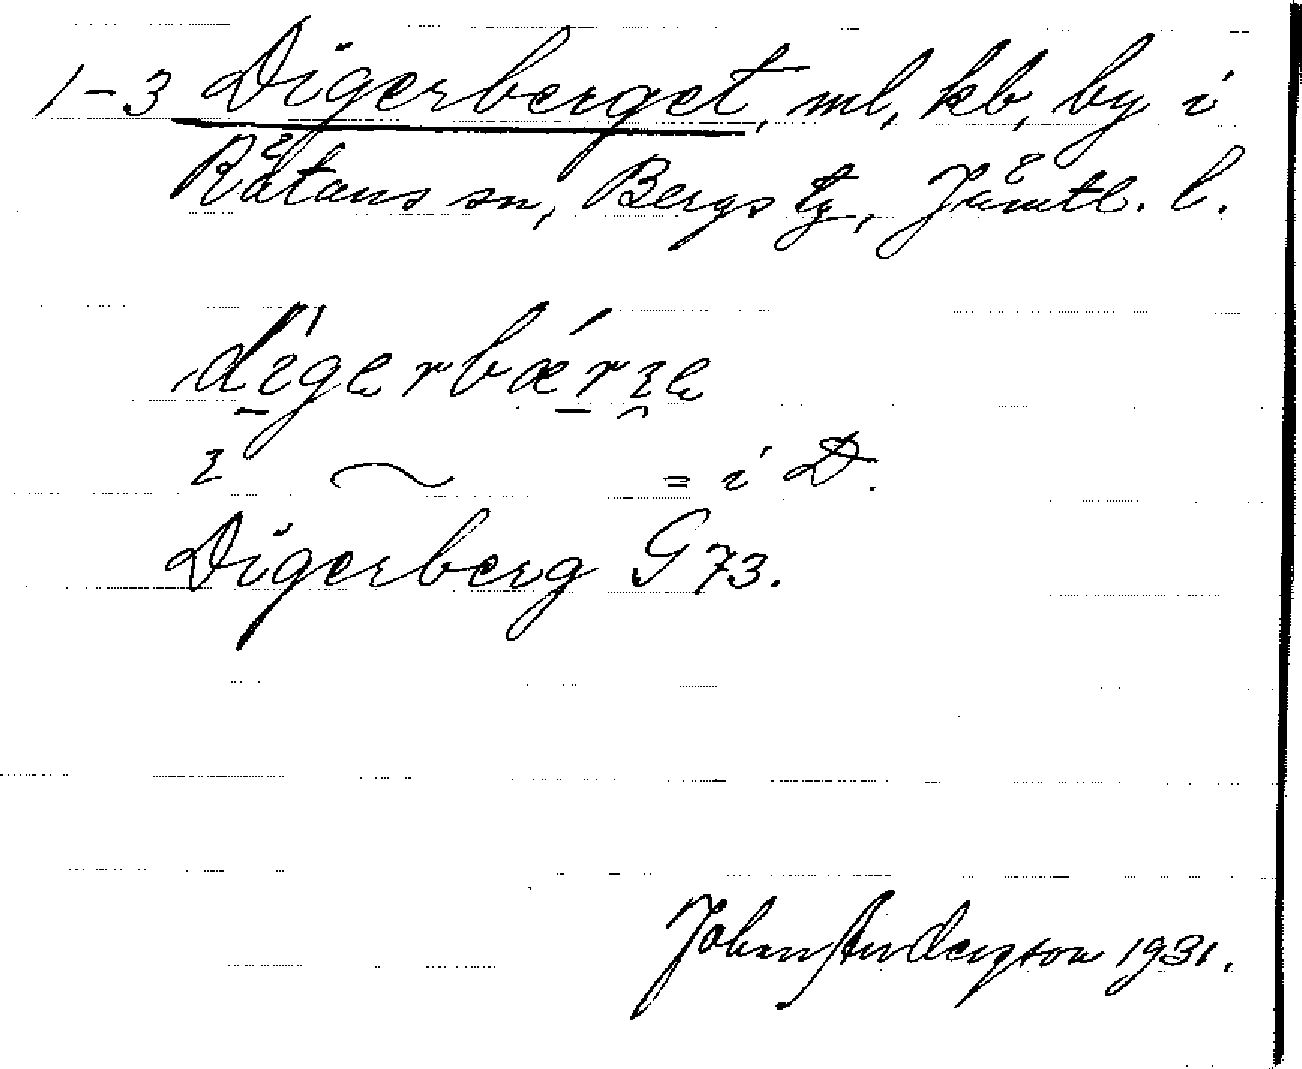 1-3 Digerberget, ml, kb, by i
Rätans sn, Bergs tg, Jämtl. l.
i D.
Digerberg G 73.
John Anderson 1931.